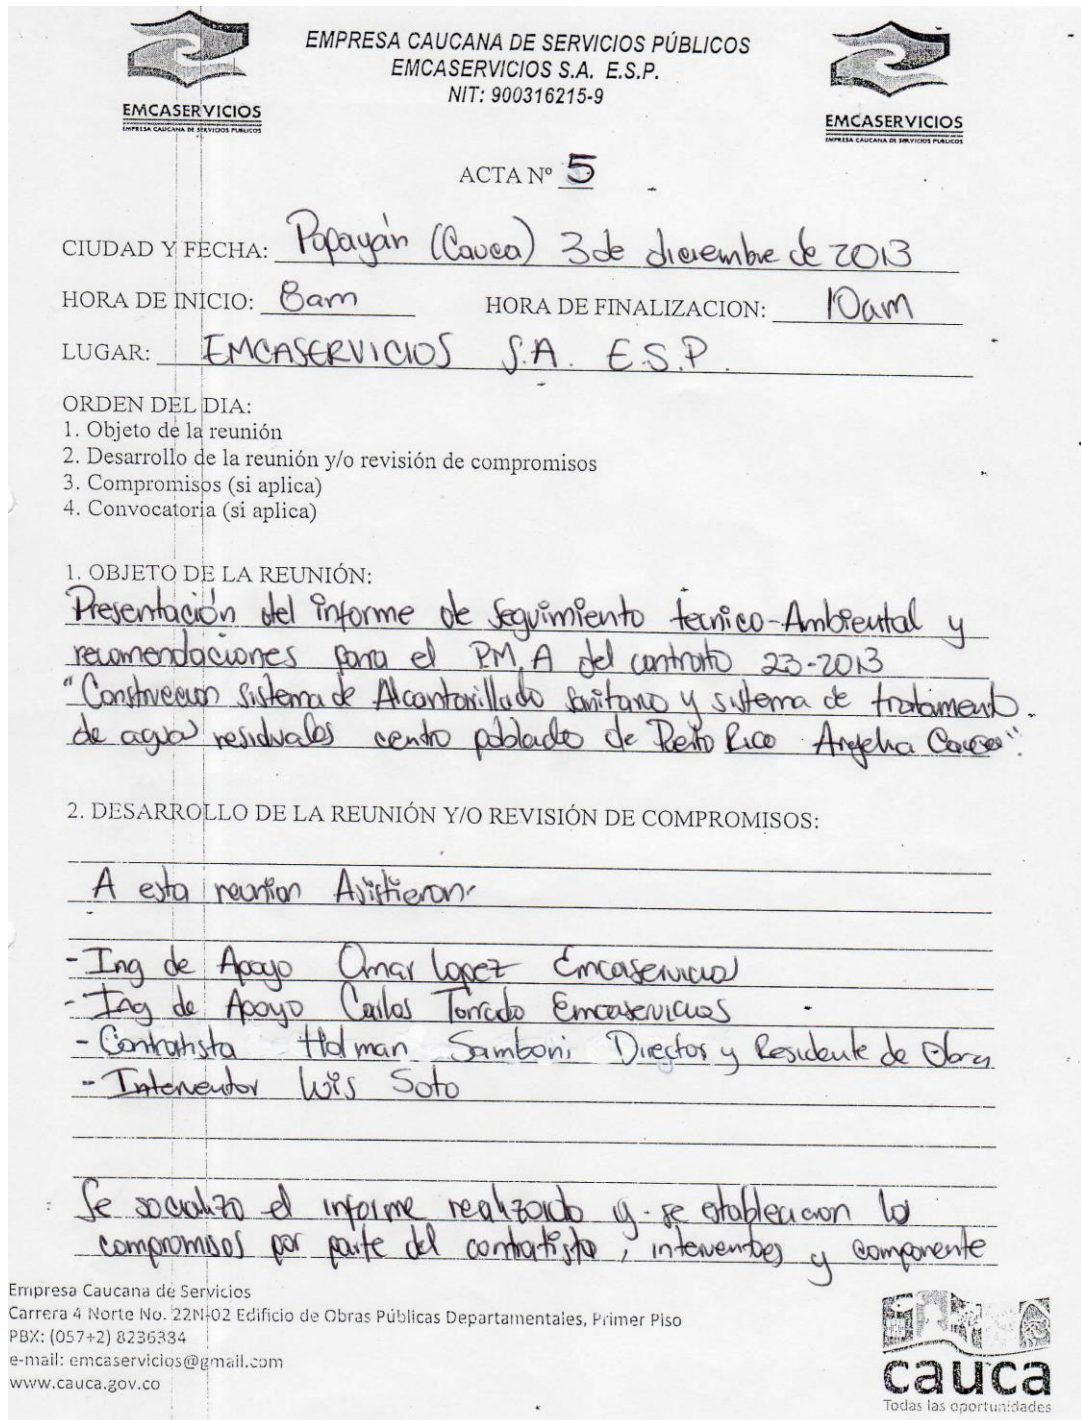 EMPRESA CAUCANA DE SERVICIOS PÚBLICOS
EMCASERVICIOS S.A. E.S.P.
NIT: 900316215-9
EMCASERVICIOS
EMPRESA CAUCANA DE SERVICIOS PUBLICOS
EMCASERVICIOS
EMPRESA CAUCANA DE SERVICIOS PUBLICOS
ACTA Nº 5
CIUDAD Y FECHA: Popayán (Cauca) 3 de diciembre de 2013
HORA DE INICIO: 8am HORA DE FINALIZACION: 10am
LUGAR: EMCASERVICIOS S.A. E.S.P.
ORDEN DEL DIA:
1. Objeto de la reunión
2. Desarrollo de la reunión y/o revisión de compromisos
3. Compromisos (si aplica)
4. Convocatoria (si aplica)
1. OBJETO DE LA REUNIÓN:
Presentación del informe de seguimiento tecnico-Ambiental y
recomendaciones para el P.M.A del contrato 23-2013
"Construccion sistema de Alcantarillado sanitario y sistema de tratamiento
de agua residuales centro poblado de Rico Argelia Cauca".
2. DESARROLLO DE LA REUNIÓN Y/O REVISIÓN DE COMPROMISOS:
A esta reunion Asistieron
- Ing de Apoyo Omar Lopez Emcaservicios
- Ing de Apoyo Carlos Torrado Emcaservicios
- Contratista Holman Samboni, Director y Residente de Obra
- Interventor Luis Soto
Se socializo el informe realizado y se establecieron los
compromisos por parte del contratista, interventores y componente
Empresa Caucana de Servicios
Carrera 4 Norte No. 22N-02 Edificio de Obras Públicas Departamentales, Primer Piso
PBX: (057+2) 8236334
e-mail: emcaservicios@gmail.com
www.cauca.gov.co
cauca
Todas las oportunidades